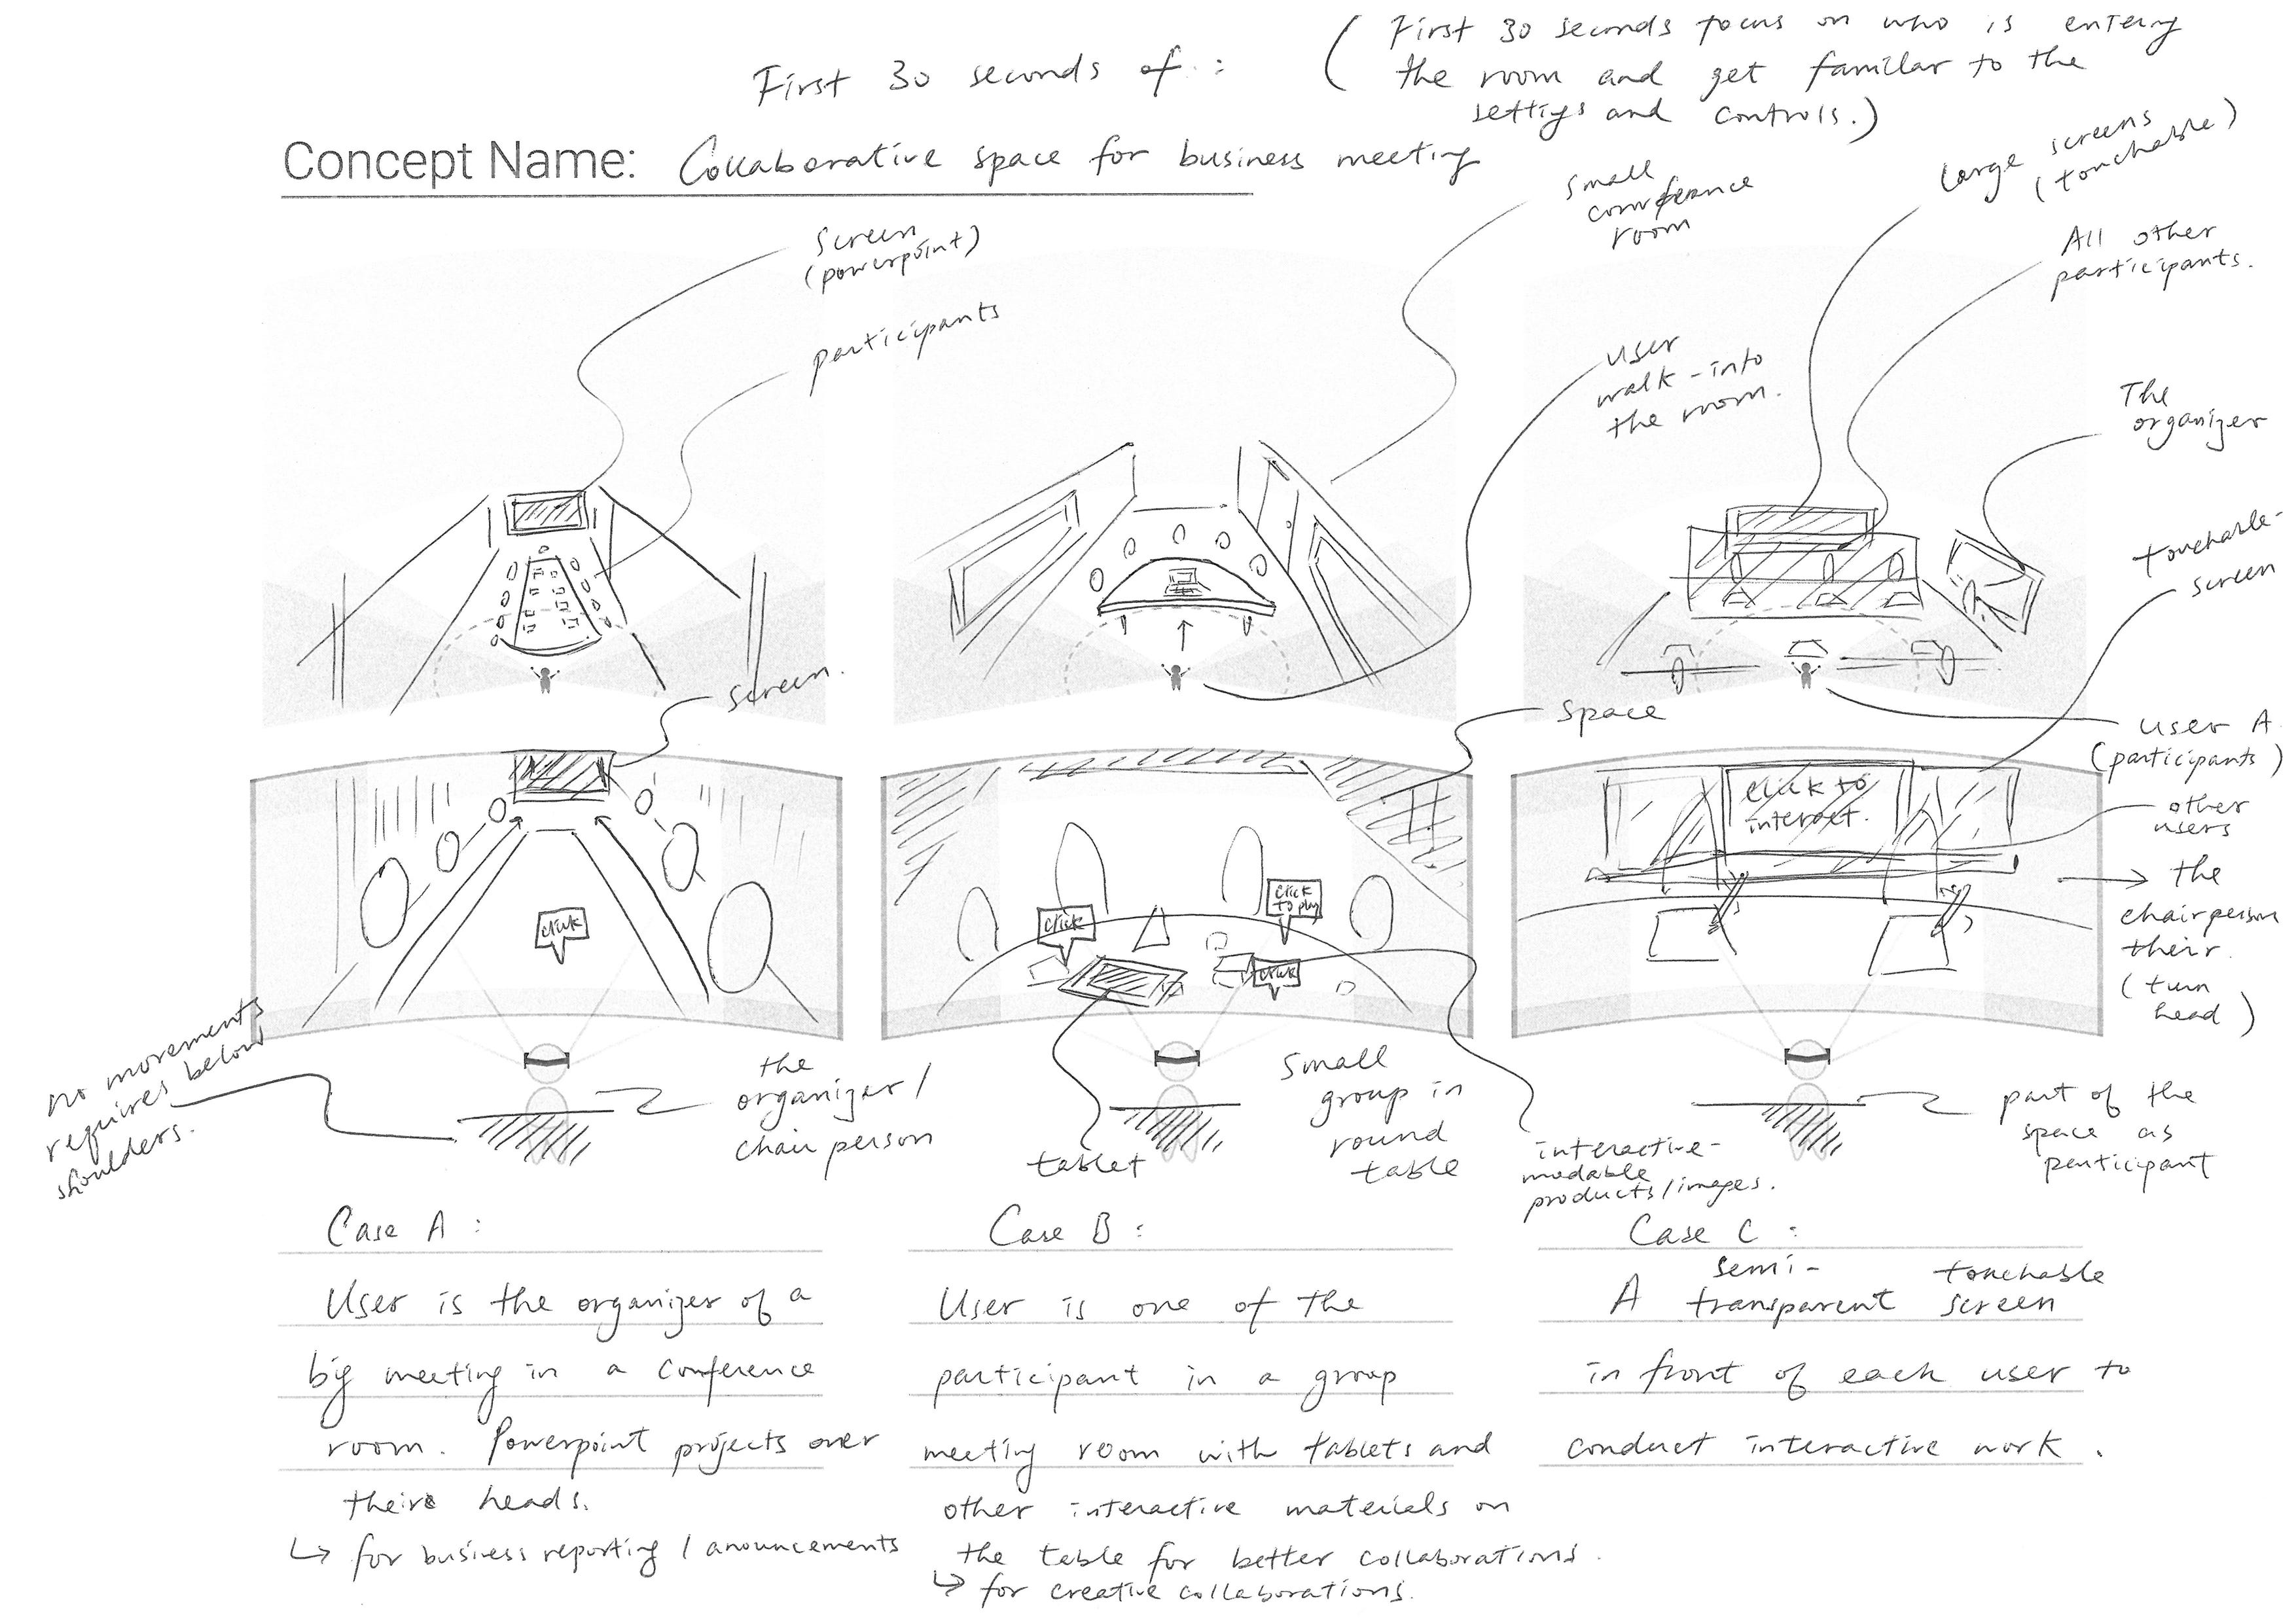 First 30 seconds of :
( First 30 seconds focus on who is entering
the room and get familar to the
settigs and controls.)
Concept Name: Collaborative space for business meeting
screen
(powerpoint)
participants
small
conference
room
user
walk-into
the room.
Large screens
(touchable)
All other
participants.
The
organizer
touchable-
screen
screen.
space
user A
(participants)
other
users
click to
interact.
the
chairperson
their.
(turn
head)
click
click
click
to play
click
no movements
requires below
shoulders.
the
organizer /
chair person
tablet
small
group in
round
table
interactive-
modable
products/images.
part of the
space as
participant
Case A :
User is the organizer of a
big meeting in a conference
room. Powerpoint projects over
their heads.
↳ for business reporting / anouncements
Case B :
User is one of the
participant in a group
meeting room with tablets and
other interactive materials on
the table for better collaborations.
↳ for creative collaborations.
Case C :
semi- touchable
A transparent screen
in front of each user to
conduct interactive work.